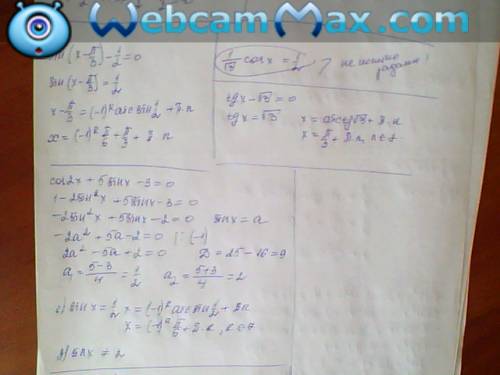 WebcamMax.com
sin(x - π/3) - 1/2 = 0
sin(x - π/3) = 1/2
x - π/3 = (-1)^k arcsin 1/2 + π·n
x = (-1)^k π/6 + π/3 + π n
1/√3 cos x = 1/2 ? не понятно задание!
tgx - √3 = 0
tgx = √3
x = arctg√3 + π·n
x = π/3 + π n, n ∈ z
cos2x + 5sinx - 3 = 0
1 - 2sin²x + 5sinx - 3 = 0
-2sin²x + 5sinx - 2 = 0 sinx = a
-2a² + 5a - 2 = 0 |:(-1)
2a² - 5a + 2 = 0 D = 25 - 16 = 9
a₁ = 5-3/4 = 1/2 a₂ = 5+3/4 = 2
1) sinx = 1/2 x = (-1)^k arcsin 1/2 + πn
x = (-1)^k π/6 + π·n, n ∈ z
2) sinx ≠ 2